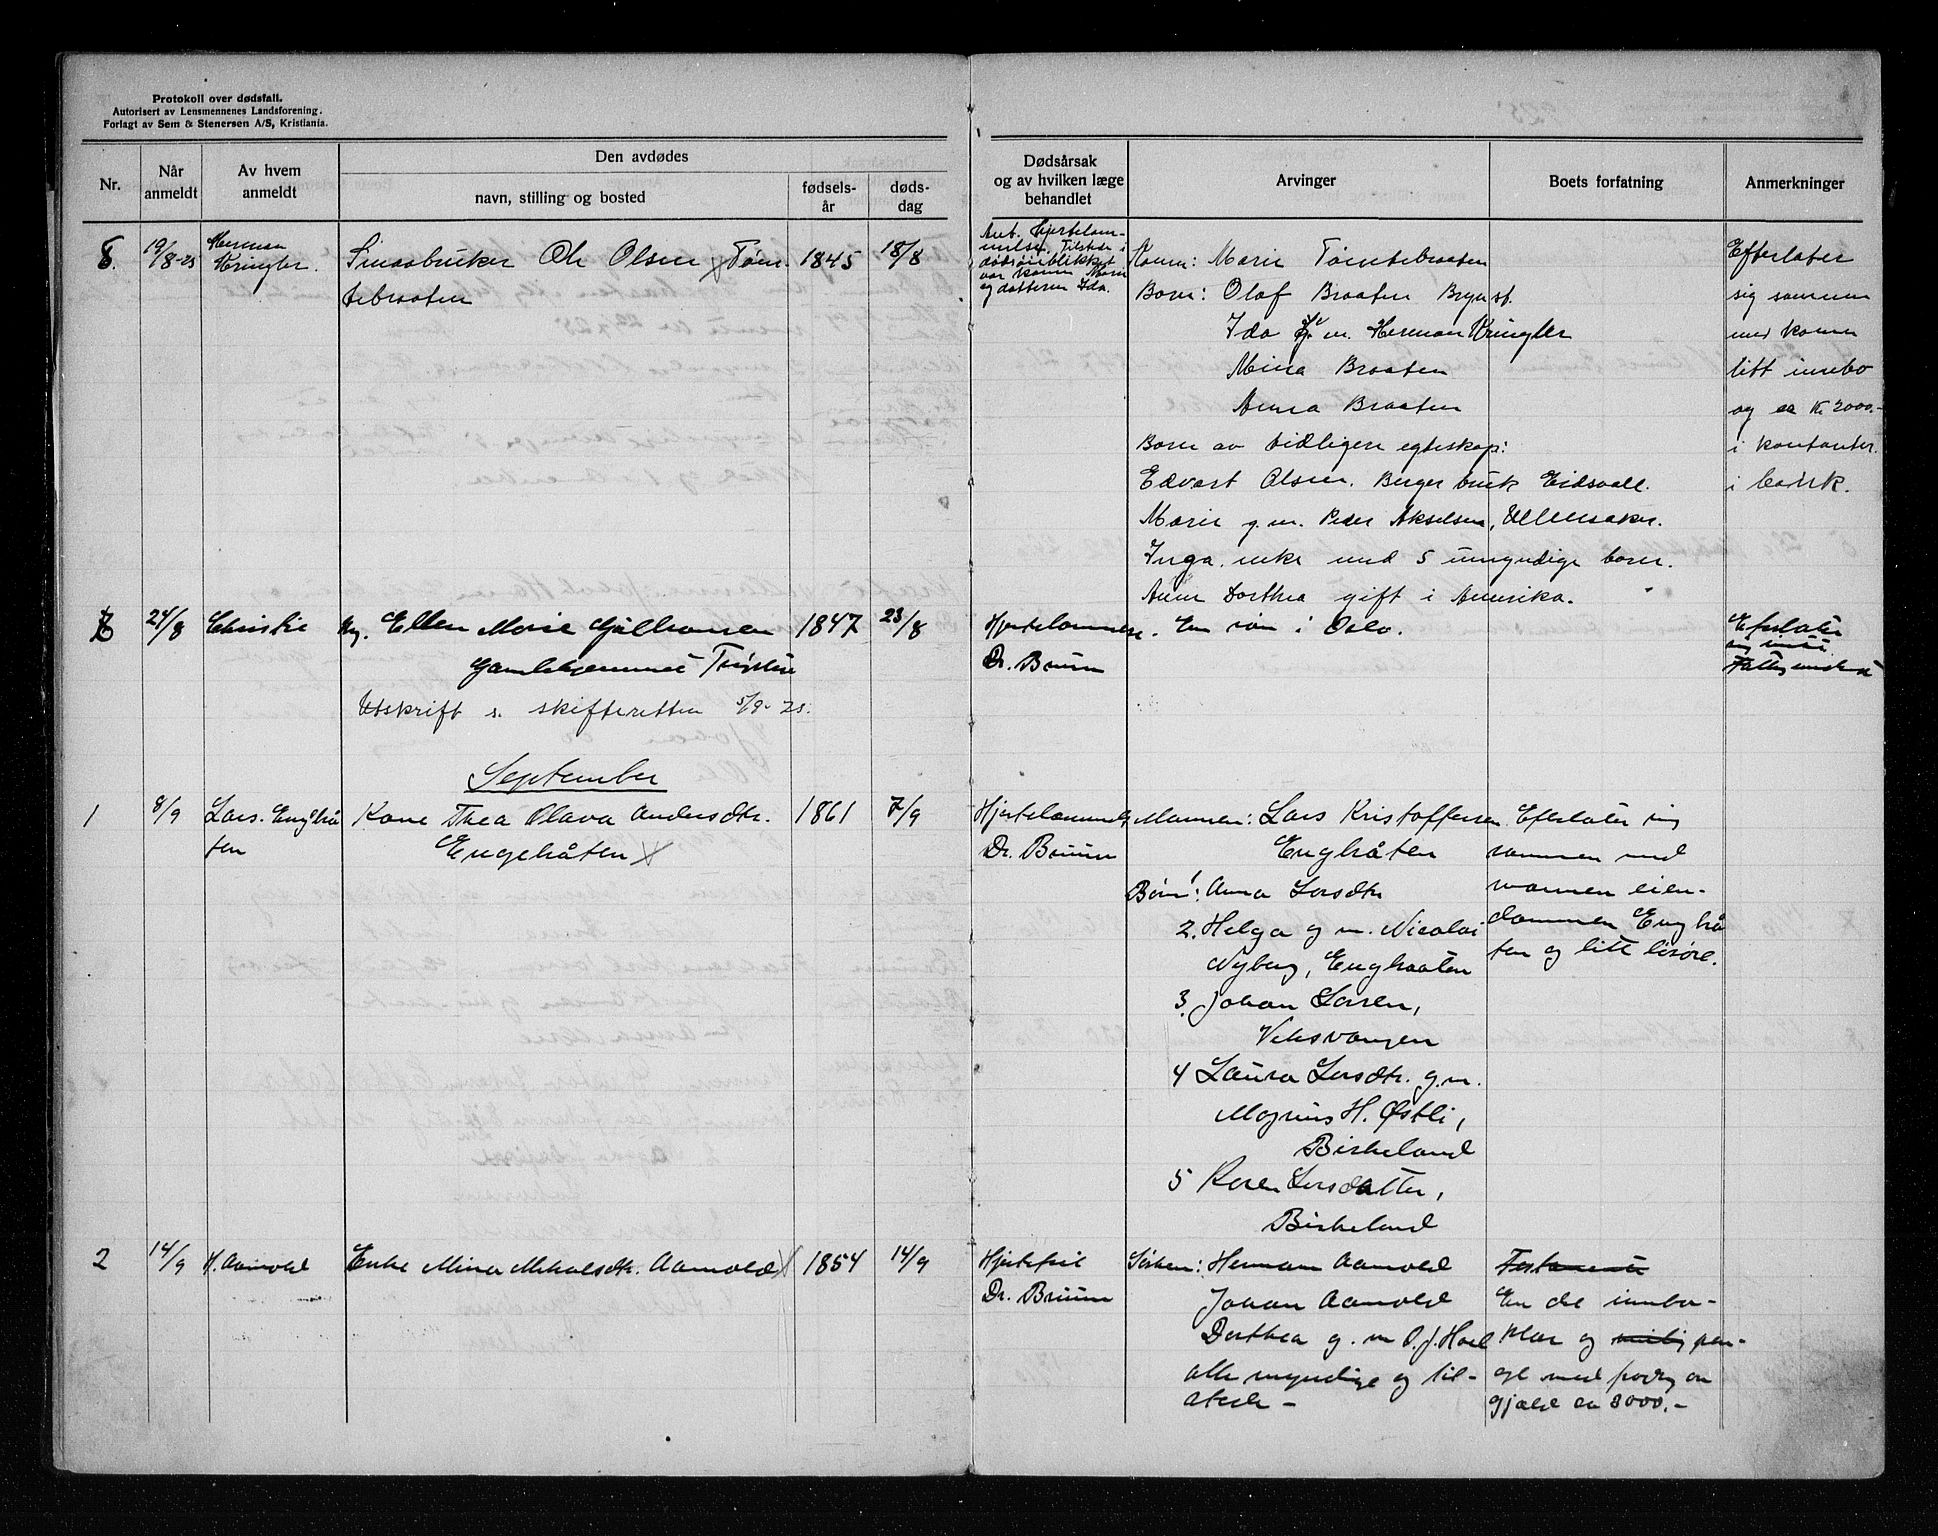 Protokoll over dødsfall.
Autorisert av Lensmennenes Landsforening.
Forlagt av Sem & Stenersen A/S, Kristiania.
Nr.
Når anmeldt
Av hvem anmeldt
Den avdødes
navn, stilling og bosted
fødsels-år
døds-dag
Dødsårsak og av hvilken læge behandlet
Arvinger
Boets forfatning
Anmerkninger
19/8-25
Herman Kringler.
Smaabruker Ole Olsen
tebraaten
1845
18/8
Ant. Hjertelam-
melse, Tilstede i
dødsøieblikket
var konen Marie
og datteren Ida.
Konen: Marie Tømtebraaten
Barn: Olaf Braaten
Ida g. m. Herman Kringler
Mina Braaten
Anna Braaten
Barn av tidligere egteskap:
Edvart Olsen. Berger bruk Eidsvoll.
Marie g.m. Peder Akselsen, Ullensaker.
Inga. enke med 5 umyndige barn.
Anne Dorthea gift i Amerika.
Efterlater
sig sammen
med konen
litt innbo
og ca Kr 2000.-
i kontanter
i bank.
24/8
Christie
Ellen Marie
Gamlehjemmet
Utskrift s. skifteretten 5/9-25.
1847
23/8
Hjertelammelse.
Dr. Bruun
En søn i Oslo.
Efterlater
sig intet.
September
1
8/9
Lars. Enghå
ten
Kone Thea Olava Andersdtr.
Engehåten
1861
7/9
Hjertelammels
Dr. Bruun
Mannen: Lars Kristoffersen
Enghåten
Børn: 1 Anna Larsdtr
2. Helga g m. Nicolai
Nyberg, Enghaaten
3. Johan Larsen,
4 Laura Larsdtr. g.m.
Magnus H. Østli,
Birkeland
5 Karen Larsdatter,
Birkeland
Efterlater sig
sammen med
mannen eien-
dommen Enghå
ten og litt løsøre.
2
14/9
H. Aamold
Enke Mina Mikalsdtr. Aamold
1854
14/9
Hjertefeil
Dr. Bruun
Søsken: Herman Aamold
Johan Aamold
Dorthea g. m O. J. Hoel
alle myndige og til-
stede -
En del innbo-
gjæld ca 3000.-